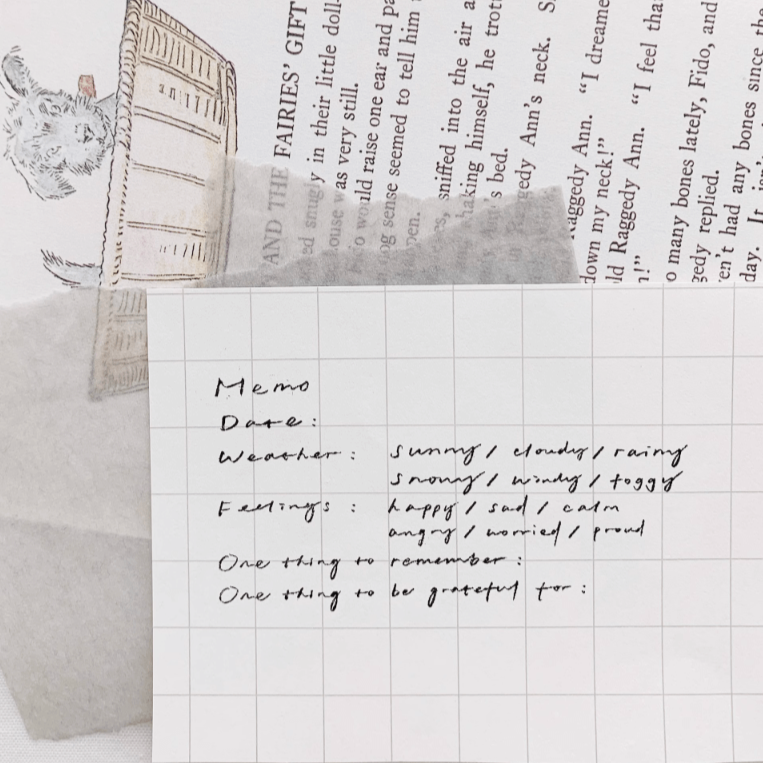 AND THE FAIRIES' GIFT
snugly in their little doll-
was very still.
would raise one ear and
sense seemed to tell him
sniffed into the air a
himself, he
bed.
Ann's neck.
Raggedy Ann. "I
down my neck!"
Raggedy Ann. "I feel
many bones lately, Fido, and
replied.
had any bones since the
day. It
Memo
Date:
Weather: sunny/ cloudy/ rainy
snowy/ windy/ foggy
Feelings: happy/ sad/ calm
angry/ worried/ proud
One thing to remember:
One thing to be grateful for: